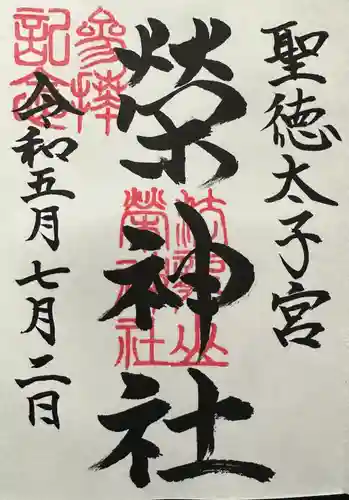 聖徳太子宮
榮神社
令和五月七月二日
參拝
記念